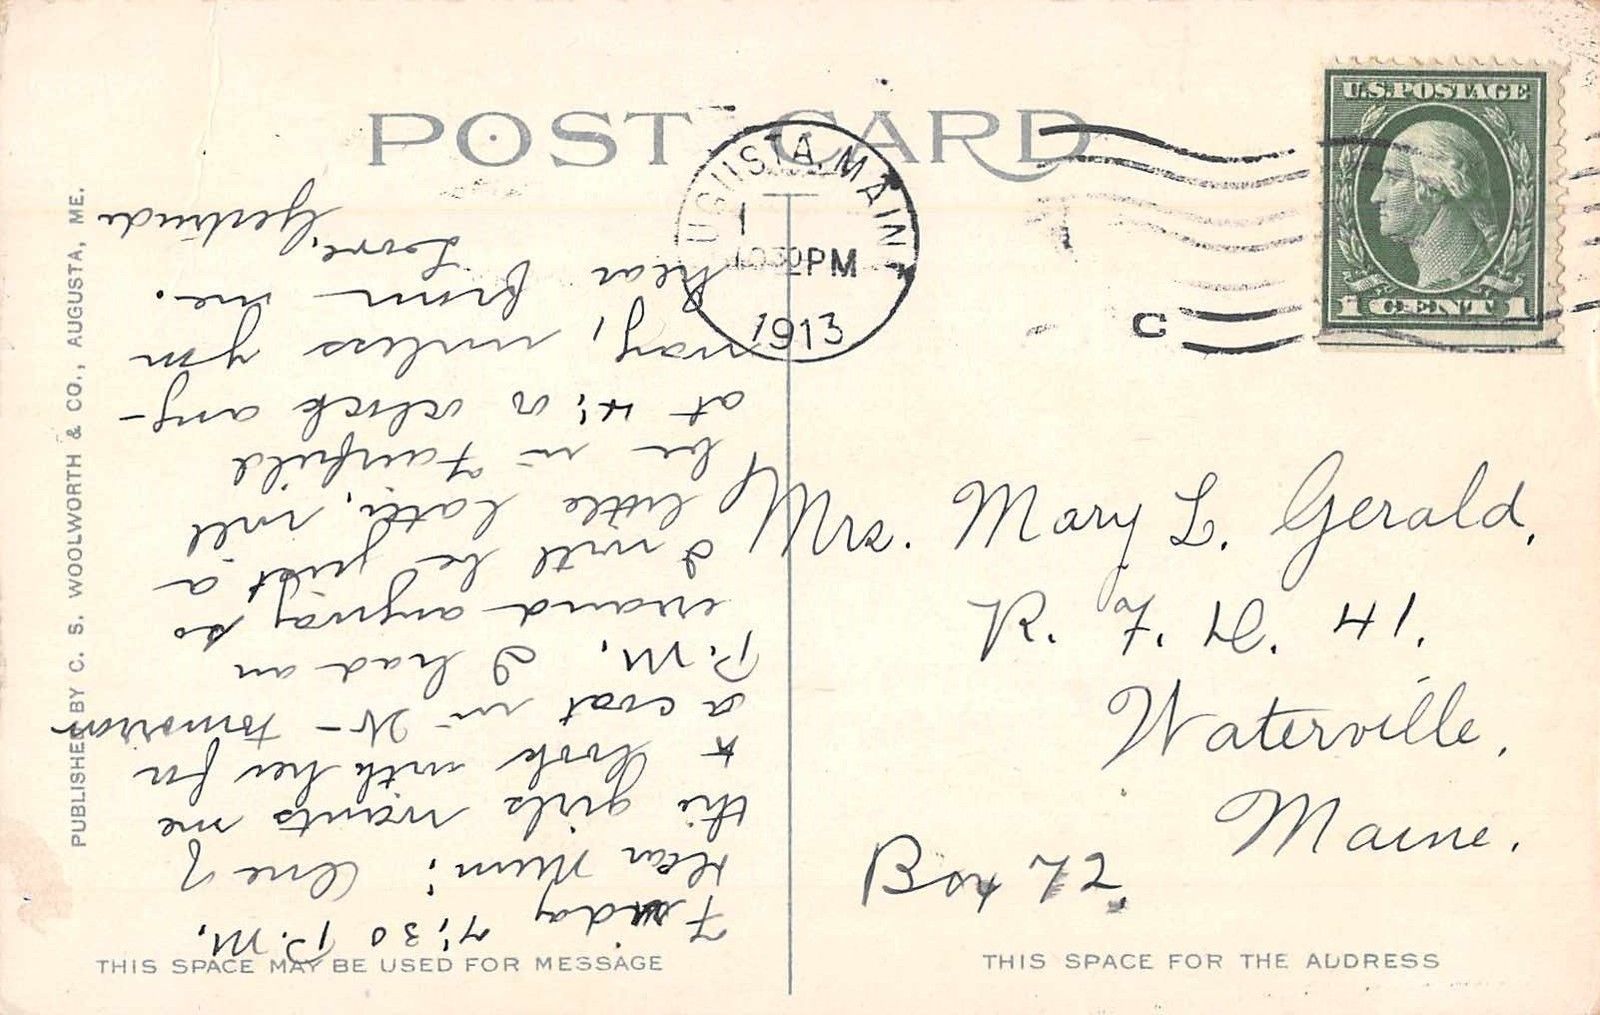 POST CARD
AUGUSTA, MAINE
1030PM
1913
C
U.S. POSTAGE
1 CENT 1
Friday 7:30 P.M.
Dear Mum: One of
the girls wants me
to look with her for
a coat in W- tomorrow
P.M. I had an
errand anyway so
I will be just a
little later, will
be in Fairfield
at 4: o clock any-
way, unless you
hear from me.
Love,
Gertrude
Mrs. Mary L. Gerald,
R. F. D. 41.
Waterville,
Maine.
Box 72.
THIS SPACE MAY BE USED FOR MESSAGE
THIS SPACE FOR THE ADDRESS
PUBLISHED BY C. S. WOOLWORTH & CO., AUGUSTA, ME.